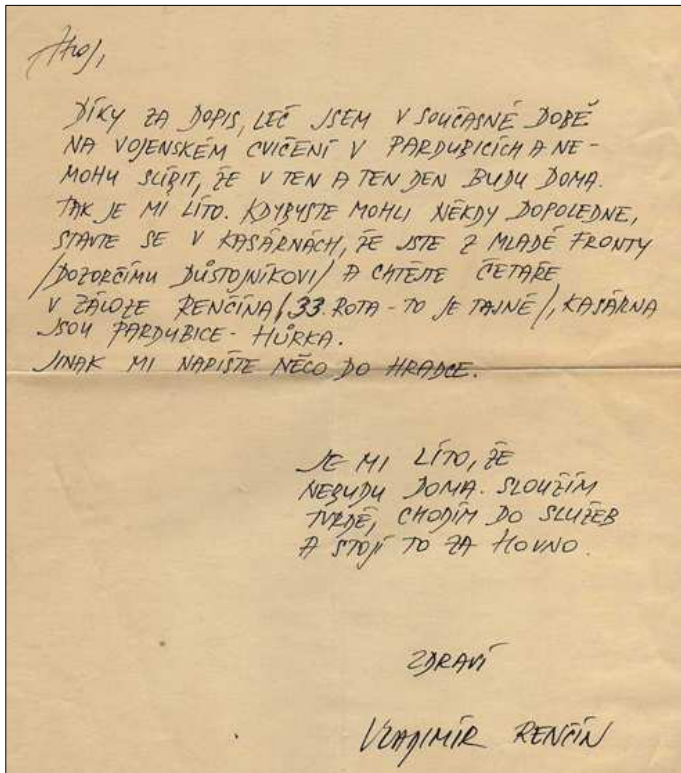 Ahoj,
DÍKY ZA DOPIS, LEČ JSEM V SOUČASNÉ DOBĚ
NA VOJENSKÉM CVIČENÍ V PARDUBICÍCH A NE-
MOHU SLÍBIT, ŽE V TEN A TEN DEN BUDU DOMA.
TAK JE MI LÍTO. KDYBYSTE MOHLI NĚKDY DOPOLEDNE,
STAVTE SE V KASÁRNÁCH, ŽE JSTE Z MLADÉ FRONTY
/DOZORČÍMU DŮSTOJNÍKOVI/ A CHTĚJTE ČETAŘE
V ZÁLOZE RENČÍNA /33. ROTA - TO JE TAJNÉ/, KASÁRNA
JSOU PARDUBICE - HŮRKA.
JINAK MI NAPIŠTE NĚCO DO HRADCE.
JE MI LÍTO, ŽE
NEBUDU DOMA. SLOUŽÍM
TVRDĚ, CHODÍM DO SLUŽEB
A STOJÍ TO ZA HOVNO.
ZDRAVÍ
VLADIMÍR RENČÍN